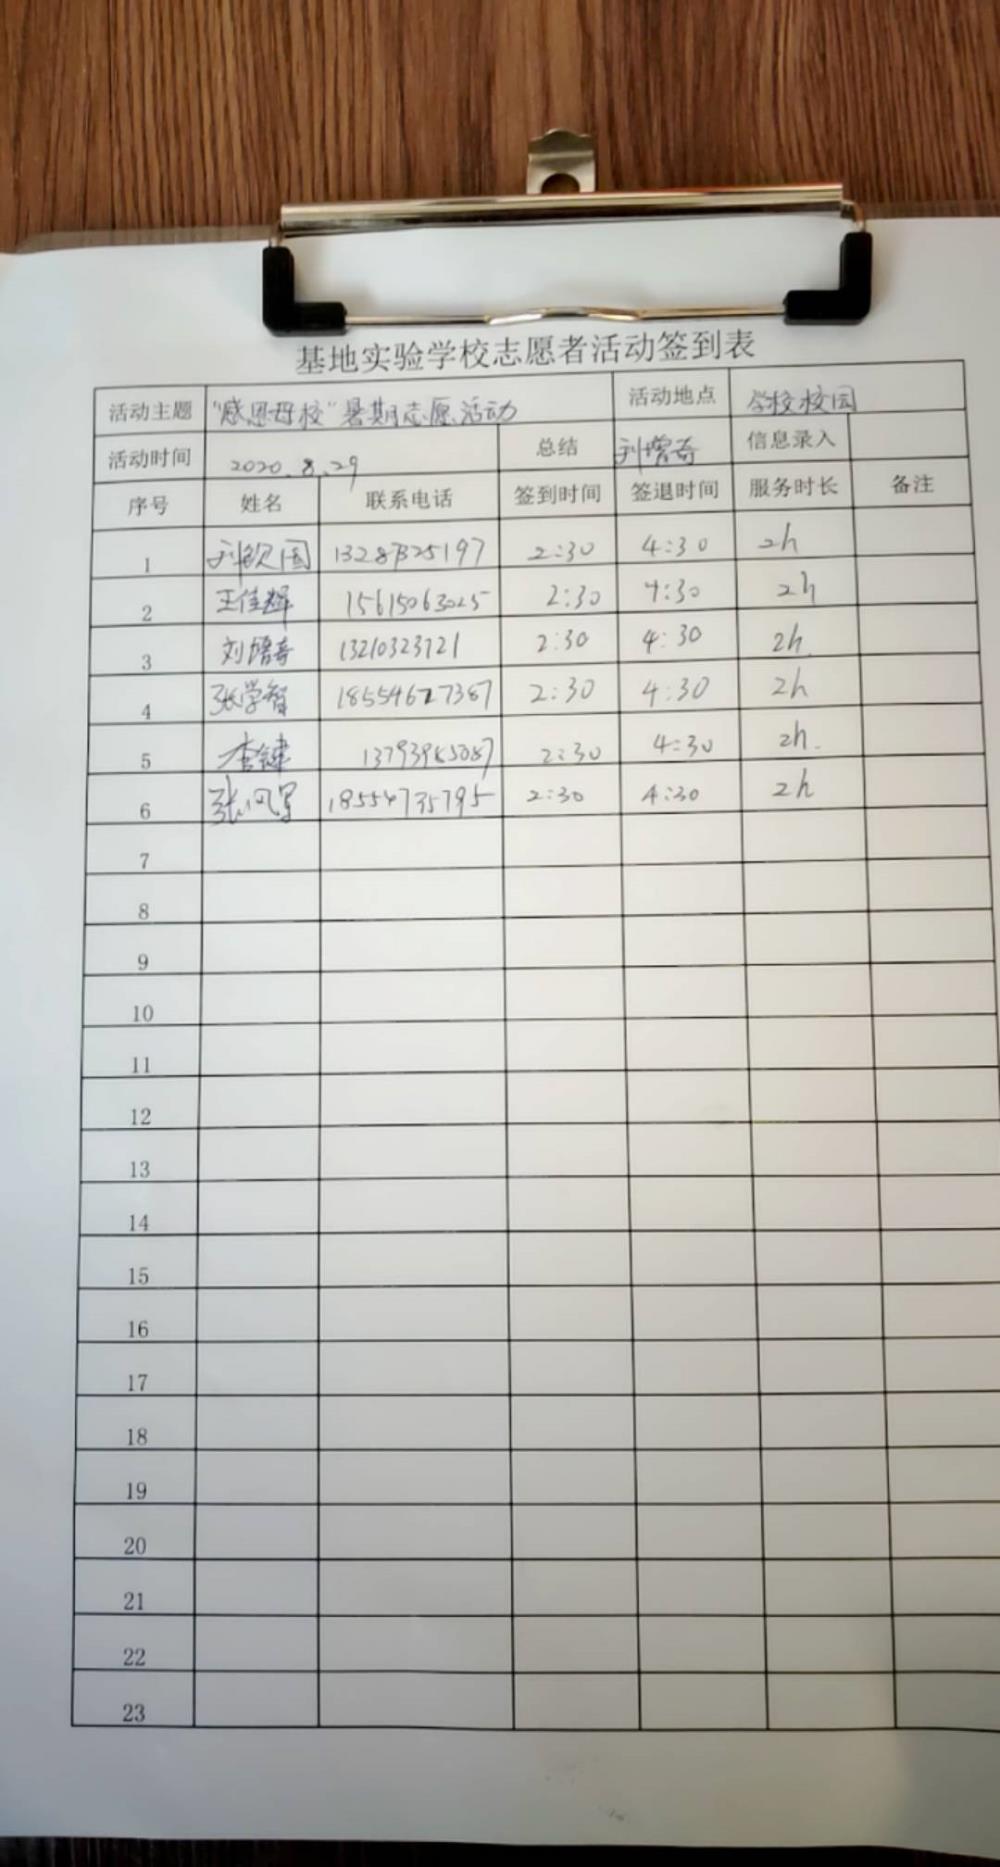 基地实验学校志愿者活动签到表
活动主题 "感恩母校"暑期志愿活动 活动地点 学校校园
活动时间 2020.8.29 总结 刘增奇 信息录入
序号 姓名 联系电话 签到时间 签退时间 服务时长 备注
1 刘钦国 2:30 4:30 2h
2 王佳辉 15615063025 2:30 4:30 2h
3 刘增奇 13210323721 2:30 4:30 2h.
4 张学智 18554627387 2:30 4:30 2h
5 李键 2:30 4:30 2h.
6 18554735795 2:30 4:30 2h
7
8
9
10
11
12
13
14
15
16
17
18
19
20
21
22
23